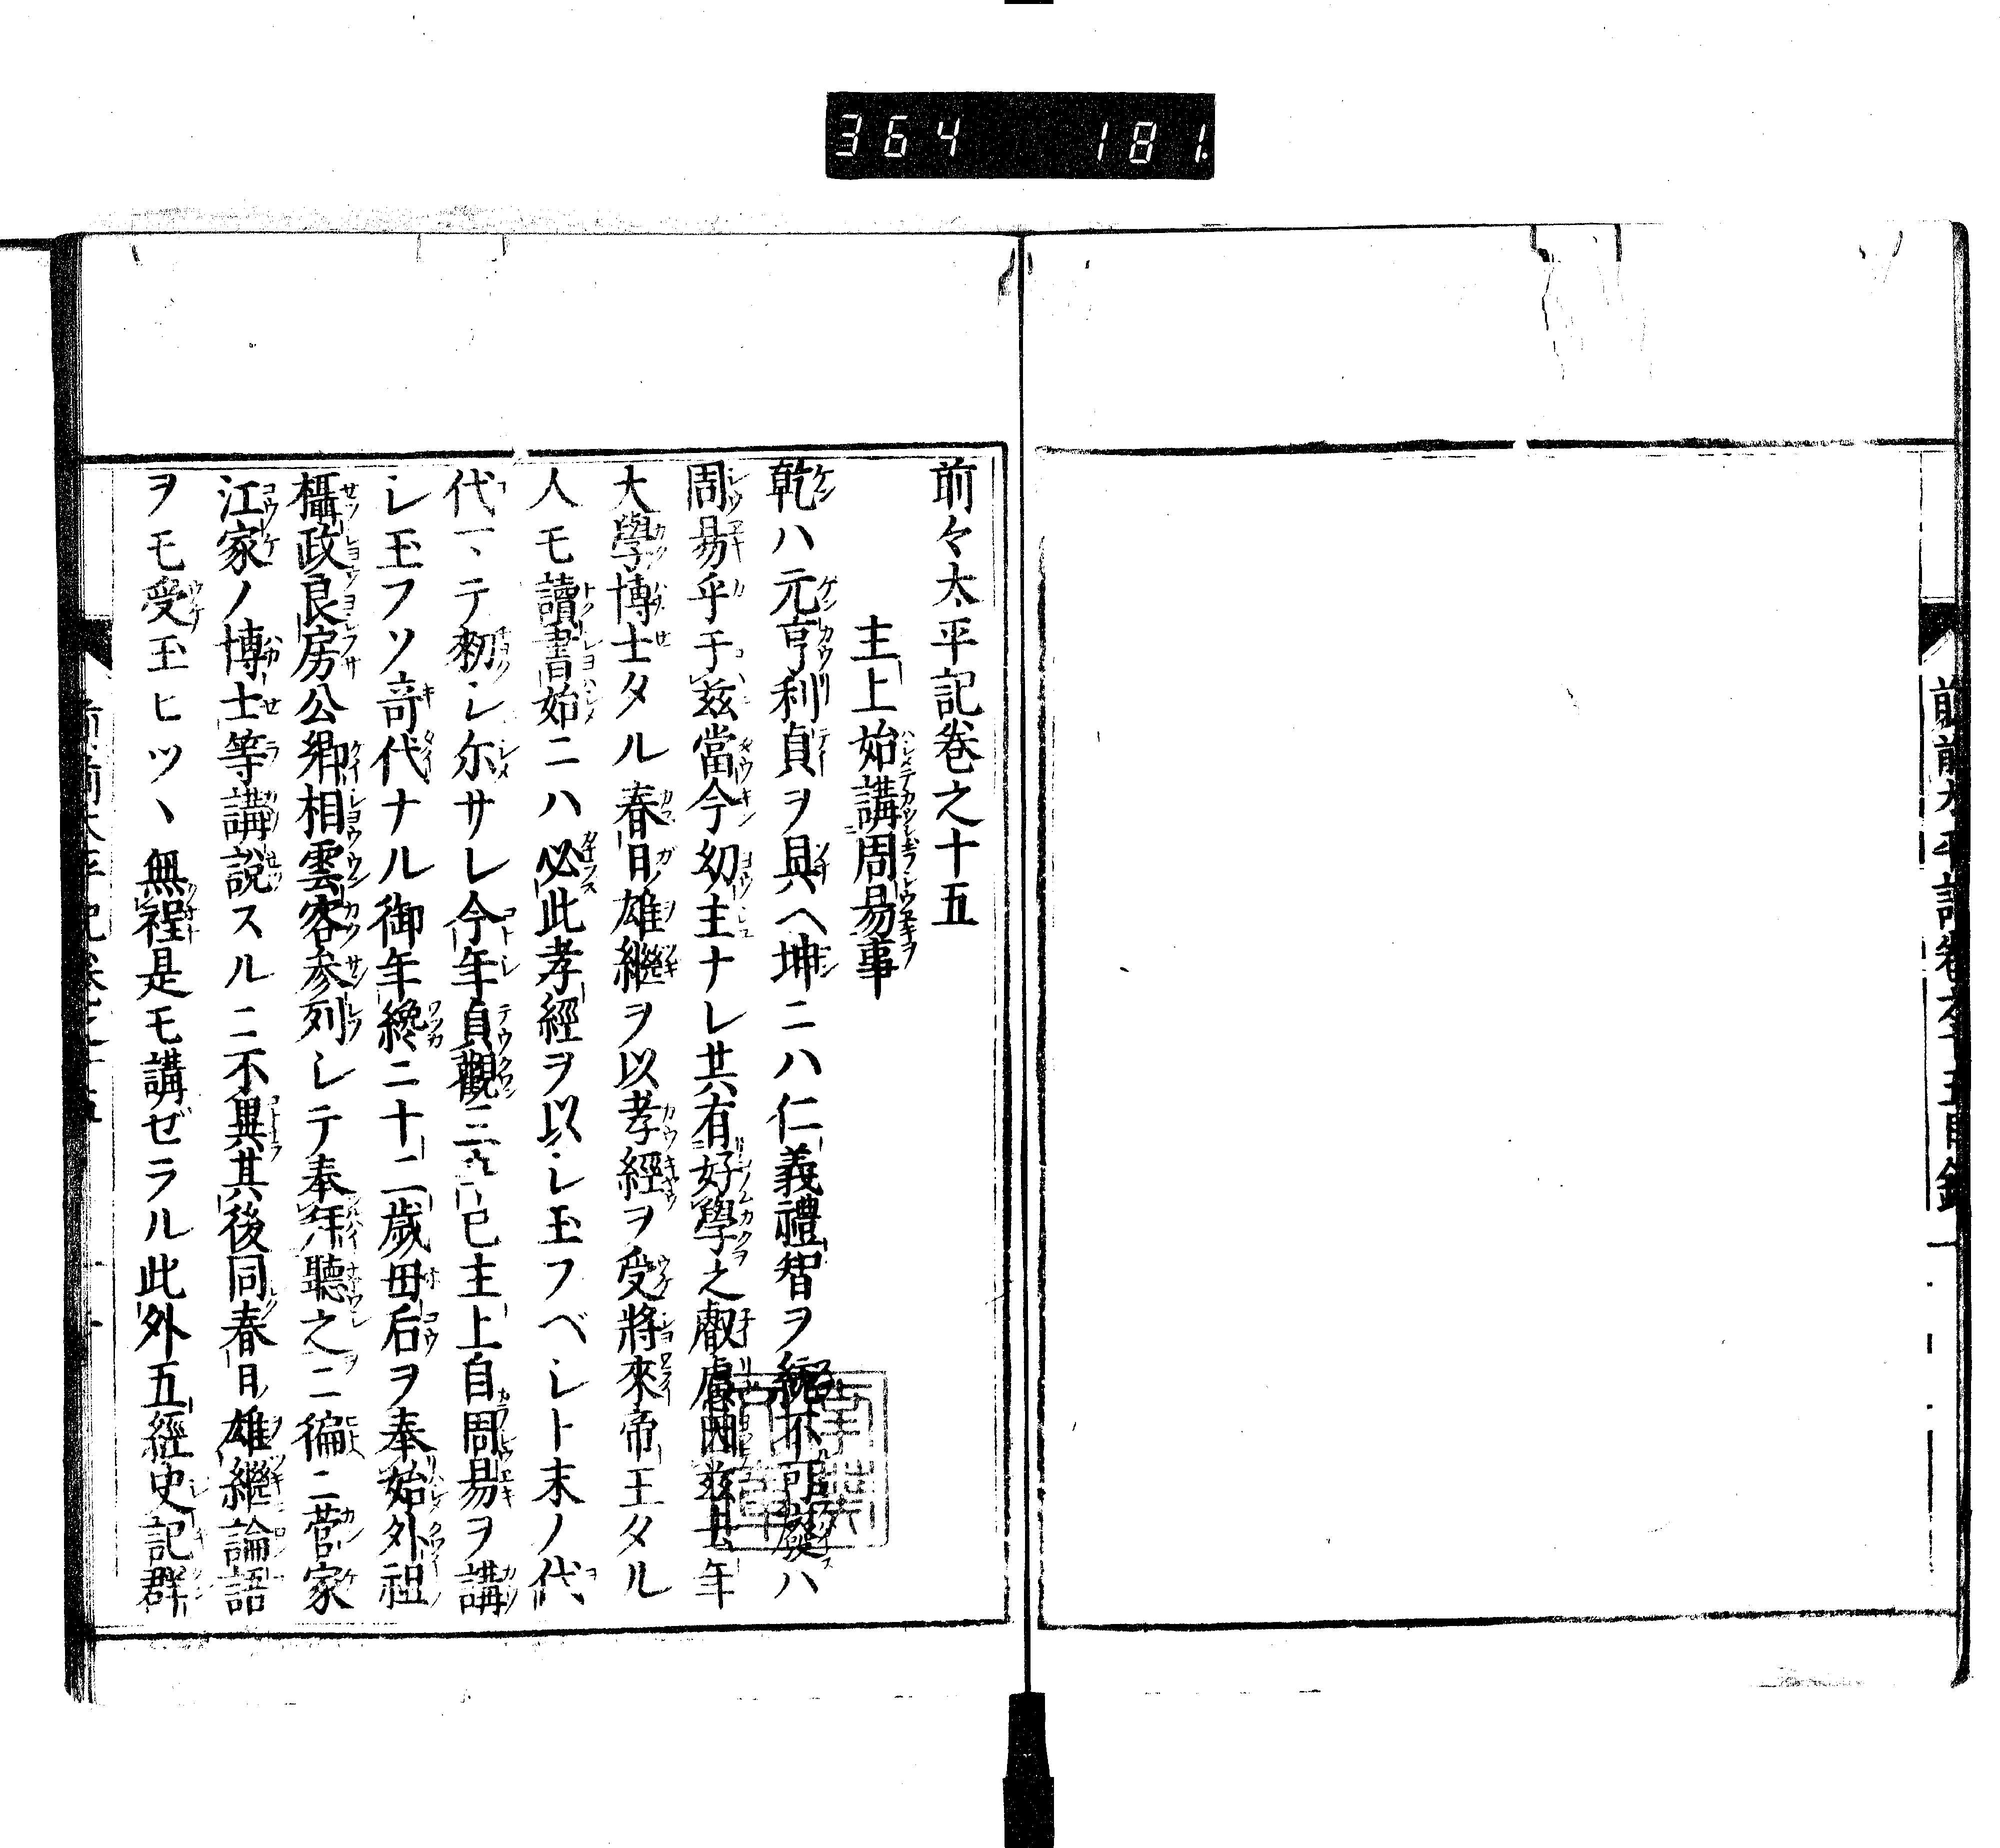 364 181
前々太平記卷之十五
主上始講周易事
乾ハ元亨利貞ヲ具ヘ坤ニハ仁義禮智ヲ統不可癈ハ
周易乎于茲當今幼主ナレ共有好學之叡慮因茲去年
大學博士タル春日雄繼ヲ以孝經ヲ受將來帝王タル
人モ讀書始ニハ必此孝經ヲ以シ玉フベシト末ノ代
代ニテ勅シ尓サレ今年貞觀三辛巳主上自周易ヲ講
シ玉フソ竒代ナル御年纔ニ十二歲母后ヲ奉始外祖
攝政良房公卿相雲客參列シテ奉拜聽之ニ徧ニ菅家
江家ノ博士等講説スルニ不異其後同春日雄繼論語
ヲモ受玉ヒツヽ無程是モ講ゼラル此外五經史記群